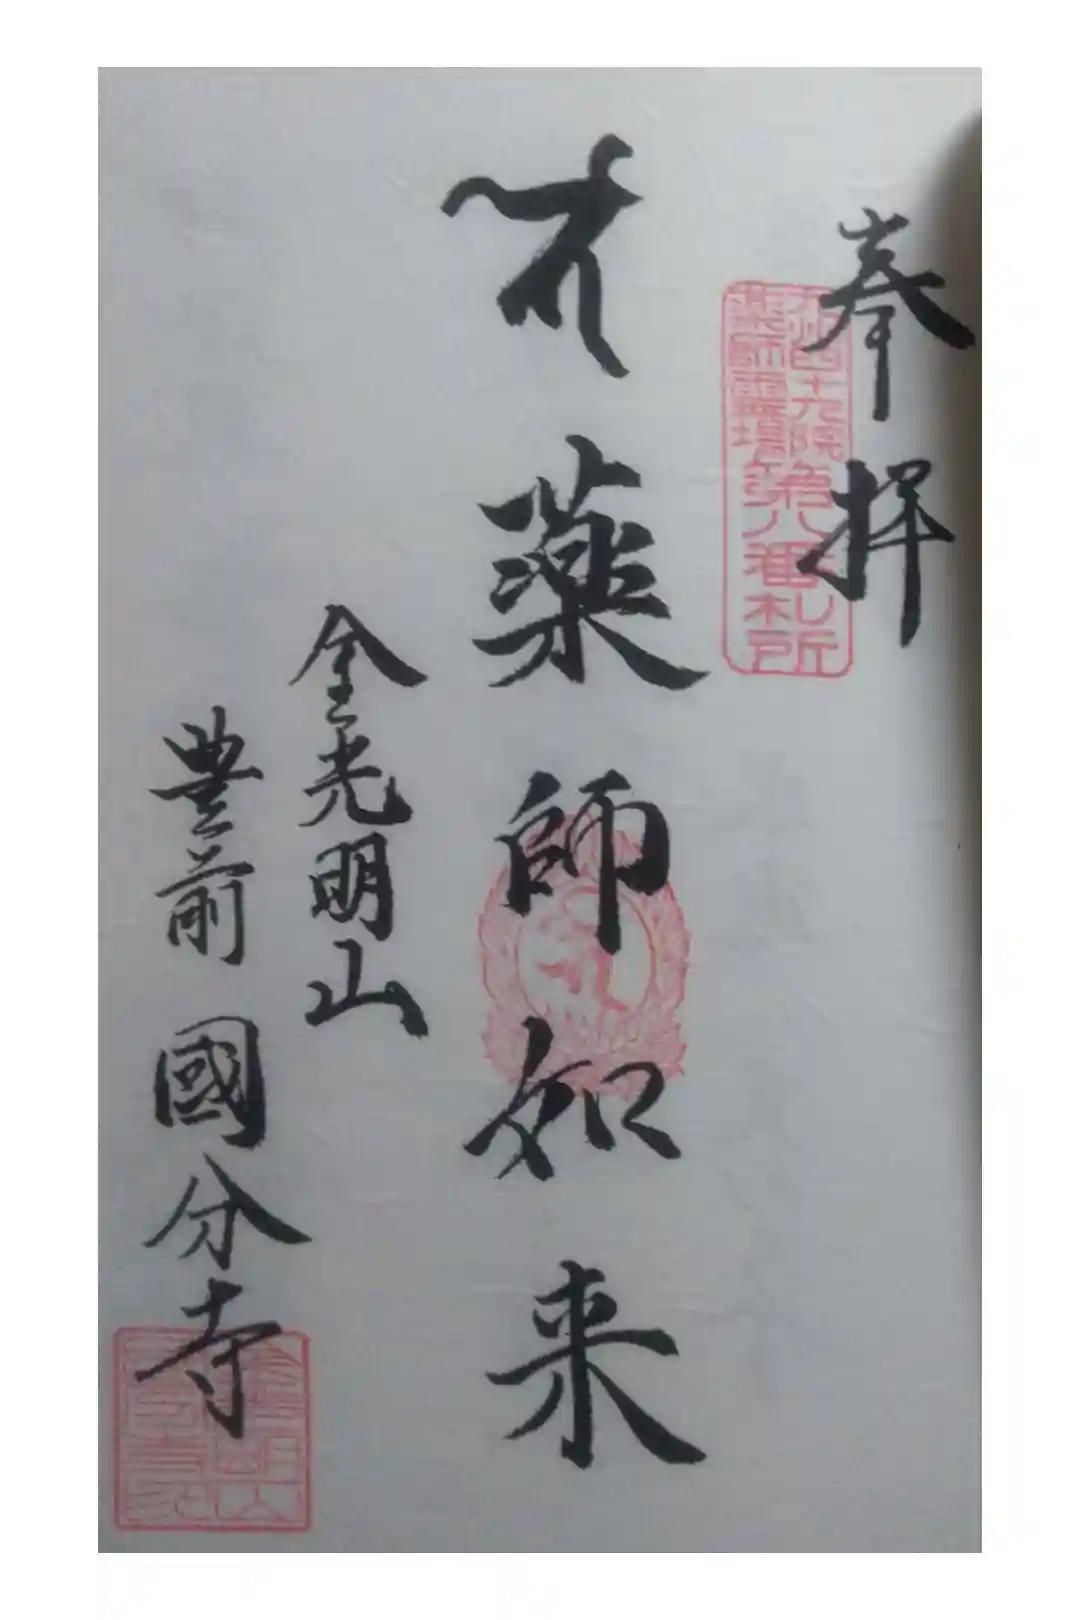 奉拝
九州四十九院
薬師霊場
第八番札所
薬師如来
金光明山
豊前 國分寺